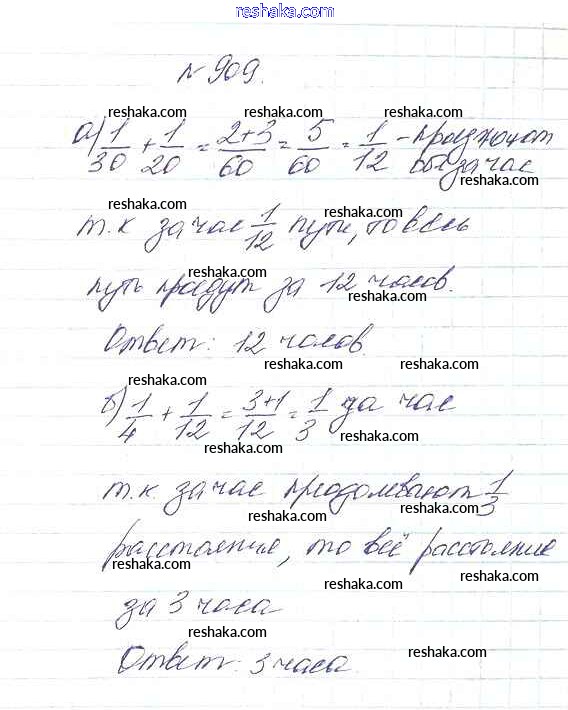 reshaka.com
№ 909.
reshaka.com reshaka.com
а) 1/30 + 1/20 = 2+3/60 = 5/60 = 1/12 - проезжают
reshaka.com reshaka.com
оба за час
reshaka.com
reshaka.com reshaka.com
т.к за час 1/12 пути, то весь
reshaka.com
путь проедут за 12 часов.
reshaka.com
Ответ: 12 часов.
reshaka.com reshaka.com
reshaka.com
б) 1/4 + 1/12 = 3+1/12 = 1/3 за час
reshaka.com
reshaka.com
т.к. за час преодолевают 1/3
reshaka.com reshaka.com
расстояния, то всё расстояние
reshaka.com reshaka.com
reshaka.com
за 3 часа
reshaka.com
Ответ: 3 часа.
reshaka.com